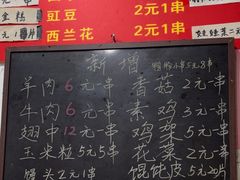 豇豆 2元1串
西兰花 2元1串
新增
羊肉 6元一串 香菇 2元一串
牛肉 6元一串 素鸡 3元一串
翅中 12元一串 鸡架 5元一串
玉米粒 5元5串 花菜 2元一串
馒头 2元1串 馄饨皮 5元